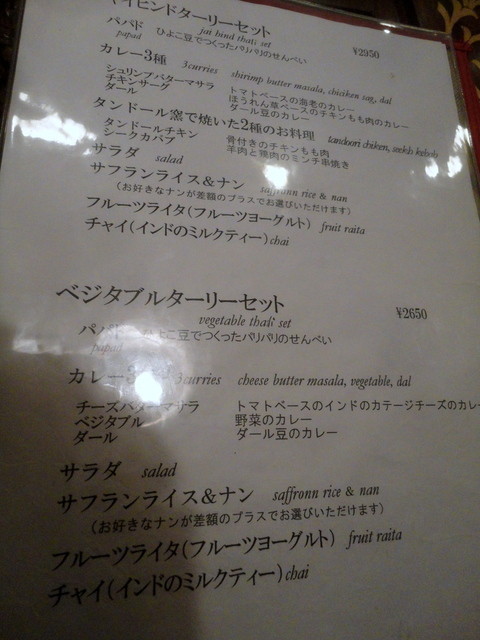 ジャイヒンドターリーセット
jai hind thali set ¥2950
パパド ひよこ豆でつくったパリパリのせんべい
papad
カレー3種 3 curries shirimp butter masala, chiciken sag, dal
シュリンプバターマサラ トマトベースの海老のカレー
チキンサーグ ほうれん草ベースのチキンもも肉のカレー
ダール ダール豆のカレー
タンドール窯で焼いた2種のお料理 tandoori chiken, seekh kebob
タンドールチキン 骨付きのチキンもも肉
シークカバブ 羊肉と鶏肉のミンチ串焼き
サラダ salad
サフランライス&ナン saffronn rice & nan
(お好きなナンが差額のプラスでお選びいただけます)
フルーツライタ(フルーツヨーグルト) fruit raita
チャイ(インドのミルクティー)chai
ベジタブルターリーセット
vegetable thali set ¥2650
パパド ひよこ豆でつくったパリパリのせんべい
papad
カレー3 3 curries cheese butter masala, vegetable, dal
チーズバターマサラ トマトベースのインドのカテージチーズのカレ
ベジタブル 野菜のカレー
ダール ダール豆のカレー
サラダ salad
サフランライス&ナン saffronn rice & nan
(お好きなナンが差額のプラスでお選びいただけます)
フルーツライタ(フルーツヨーグルト) fruit raita
チャイ(インドのミルクティー)chai